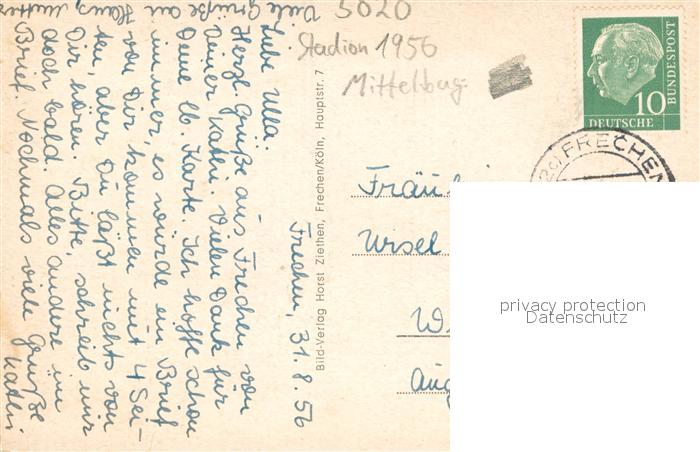 5020
Stadion 1956
Mittelburg.
10
DEUTSCHE
BUNDESPOST
FRECHEN
Frechen, 31.8.56
Liebe Ulla.
Herzl. Grüße aus Frechen von
Deiner Katli. Vielen Dank für
Deine lb. Karte. Ich hoffe schon
immer, es würde ein Brief
von Dir kommen mit 4 Sei-
ten, aber Du läßt nichts von
Dir hören. Bitte, schreib mir
doch bald. Alles andere im
Brief. Nochmals viele Grüße
Katli
Viele Grüße an
Hans,
Bild-Verlag Horst Ziethen, Frechen/Köln, Hauptstr. 7
Fräul
Wesel
W
Aug
privacy protection
Datenschutz